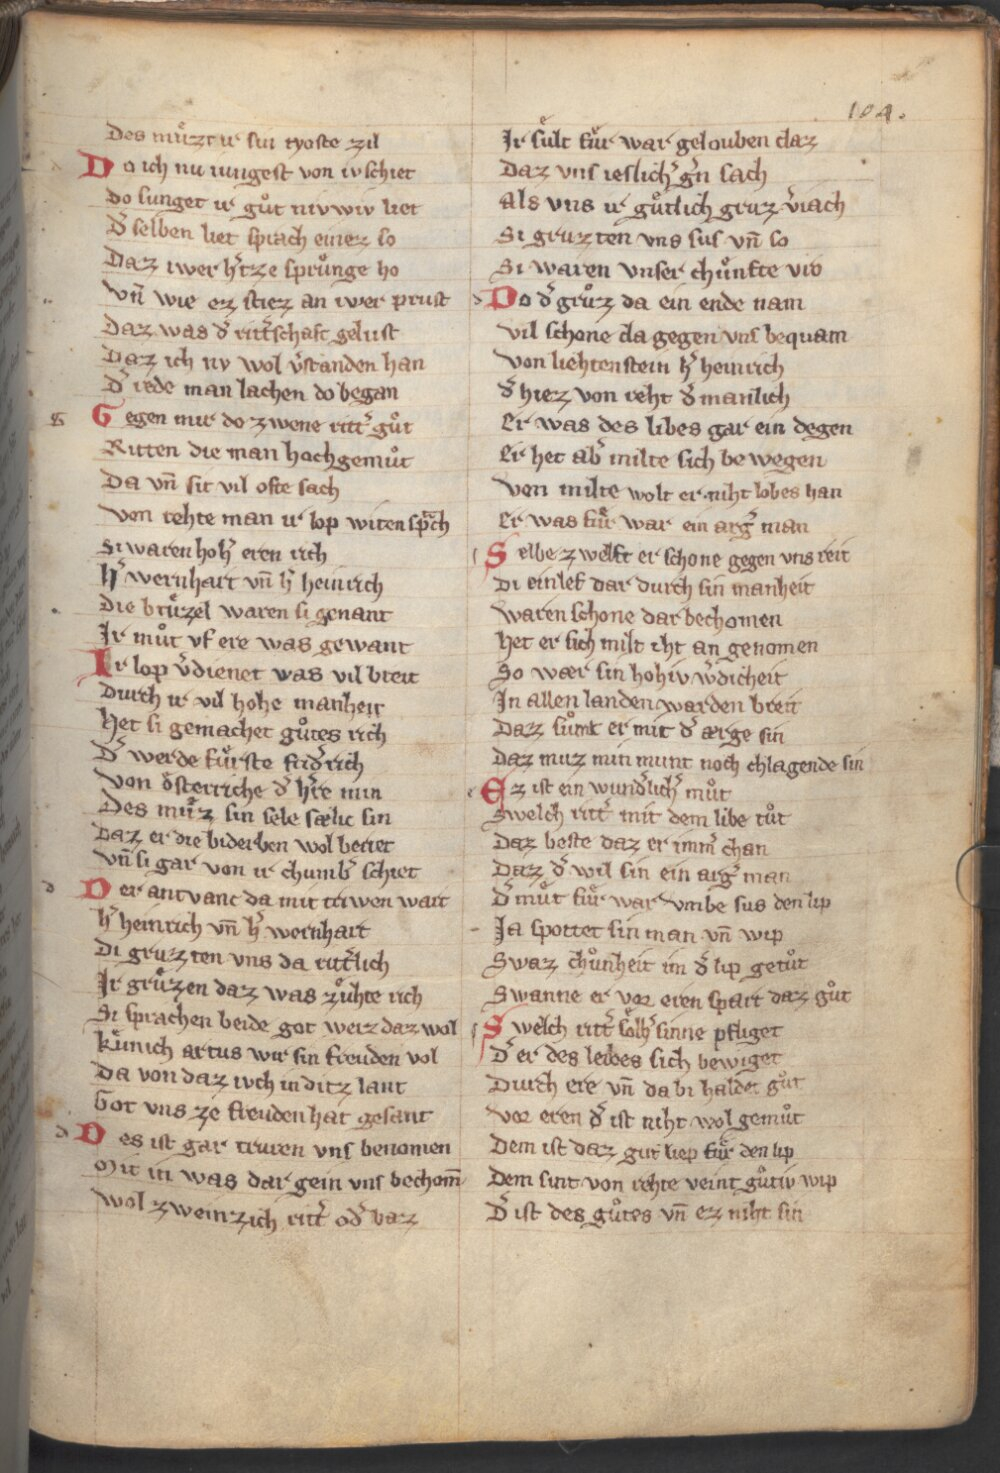 104.
Des muͤzt ir sin tyoste zil
Do ich nu iungest von iv schiet
Do sunget ir guͦt niv wiv liet
D̾ selben liet sprach einez so
Daz iwer h̾tze sprunge ho
Vn̄ wie ez stiez an iwer prust
Daz was d̾ ritt̾schaft gelust
Daz ich nv wol v̾standen han
D̾ rede man lachen do began
g Gegen mir do zwene ritt̾ guͦt
Ritten die man hochgemuͦt
Da vn̄ sit vil ofte sach
Von rehte man ir lop witen sp̾ch
Si waren hoh̾ eren rich
H̾ wernhart vn̄ h̾ heinrich
Die bruͤzel waren si genant
Ir muͦt vf ere was gewant
Ir lop v̾dienet was vil breit
Durch ir vil hohe manheit
Het si gemachet guͦtes rich
D̾ werde fuͤrste frid̾rich
Von oͤsterriche d̾ h̾re min
Des muͤz sin sele sælic sin
Daz er die biderben wol beriet
Vn̄ si gar von ir chumb̾ schiet
d Der antvanc da mit triwen wart
H̾ heinrich vn̄ h̾ wernhart
Di gruzten vns da ritt̾lich
Ir gruͤzen daz was zuͤhte rich
Si sprachen beide got weiz daz wol
Kuͤnich artus wir sin freuden vol
Da von daz ivch in ditz lant
Got vns ze freuden hat gesant
d Des ist gar truren vns benomen
Mit in was dar gein vns bechom̄
Wol zweinzich ritt̾ od̾ baz
Ir suͤlt fuͤr war gelouben daz
Daz vns ieslich̾ g̾n sach
Als vns ir guͤtlich gruz v̾iach
Si gruzten vns sus vn̄ so
Si waren vnser chuͤnfte vro
d Do d̾ gruͦz da ein ende nam
Vil schone da gegen vns bequam
Von liehtenstein h̾ heinrich
D̾ hiez von reht d̾ manlich
Er was des libes gar ein degen
Er het ab̾ milte sich bewegen
Von milte wolt er niht lobes han
Er was fuͤr war ein arg̾ man
s Selbe zwelft er schone gegen vns reit
Di einlef dar durch sin manheit
Waren schone dar bechomen
Het er sich milt iht an genomen
So wær sin hohiv w̾dicheit
In allen landen warden breit
Daz sumt er mit d̾ ærge sin
Daz muz min munt noch chlagende sin
e Ez ist ein wund̾lich̾ muͦt
Swelch ritt̾ mit dem libe tuͦt
Daz beste daz er imm̾ chan
Daz d̾ wil sin ein arg̾ man
D̾ muͤt fuͤr war vmbe sus den lip
Ja spottet sin man vn̄ wip
Swaz chuͤnheit im d̾ lip getuͦt
Swanne er vor eren spart daz guͦt
s Swelch ritt̾ soͤlh̾ sinne pfliget
D̾ er des leibes sich bewiget
Durch ere vn̄ da bi haldet guͦt
Vor eren d̾ ist niht wol gemuͦt
Dem ist daz gut liep fuͤr den lip
Dem sint von rehte veint guͦtiv wip
D̾ ist des guͦtes vn̄ ez niht sin